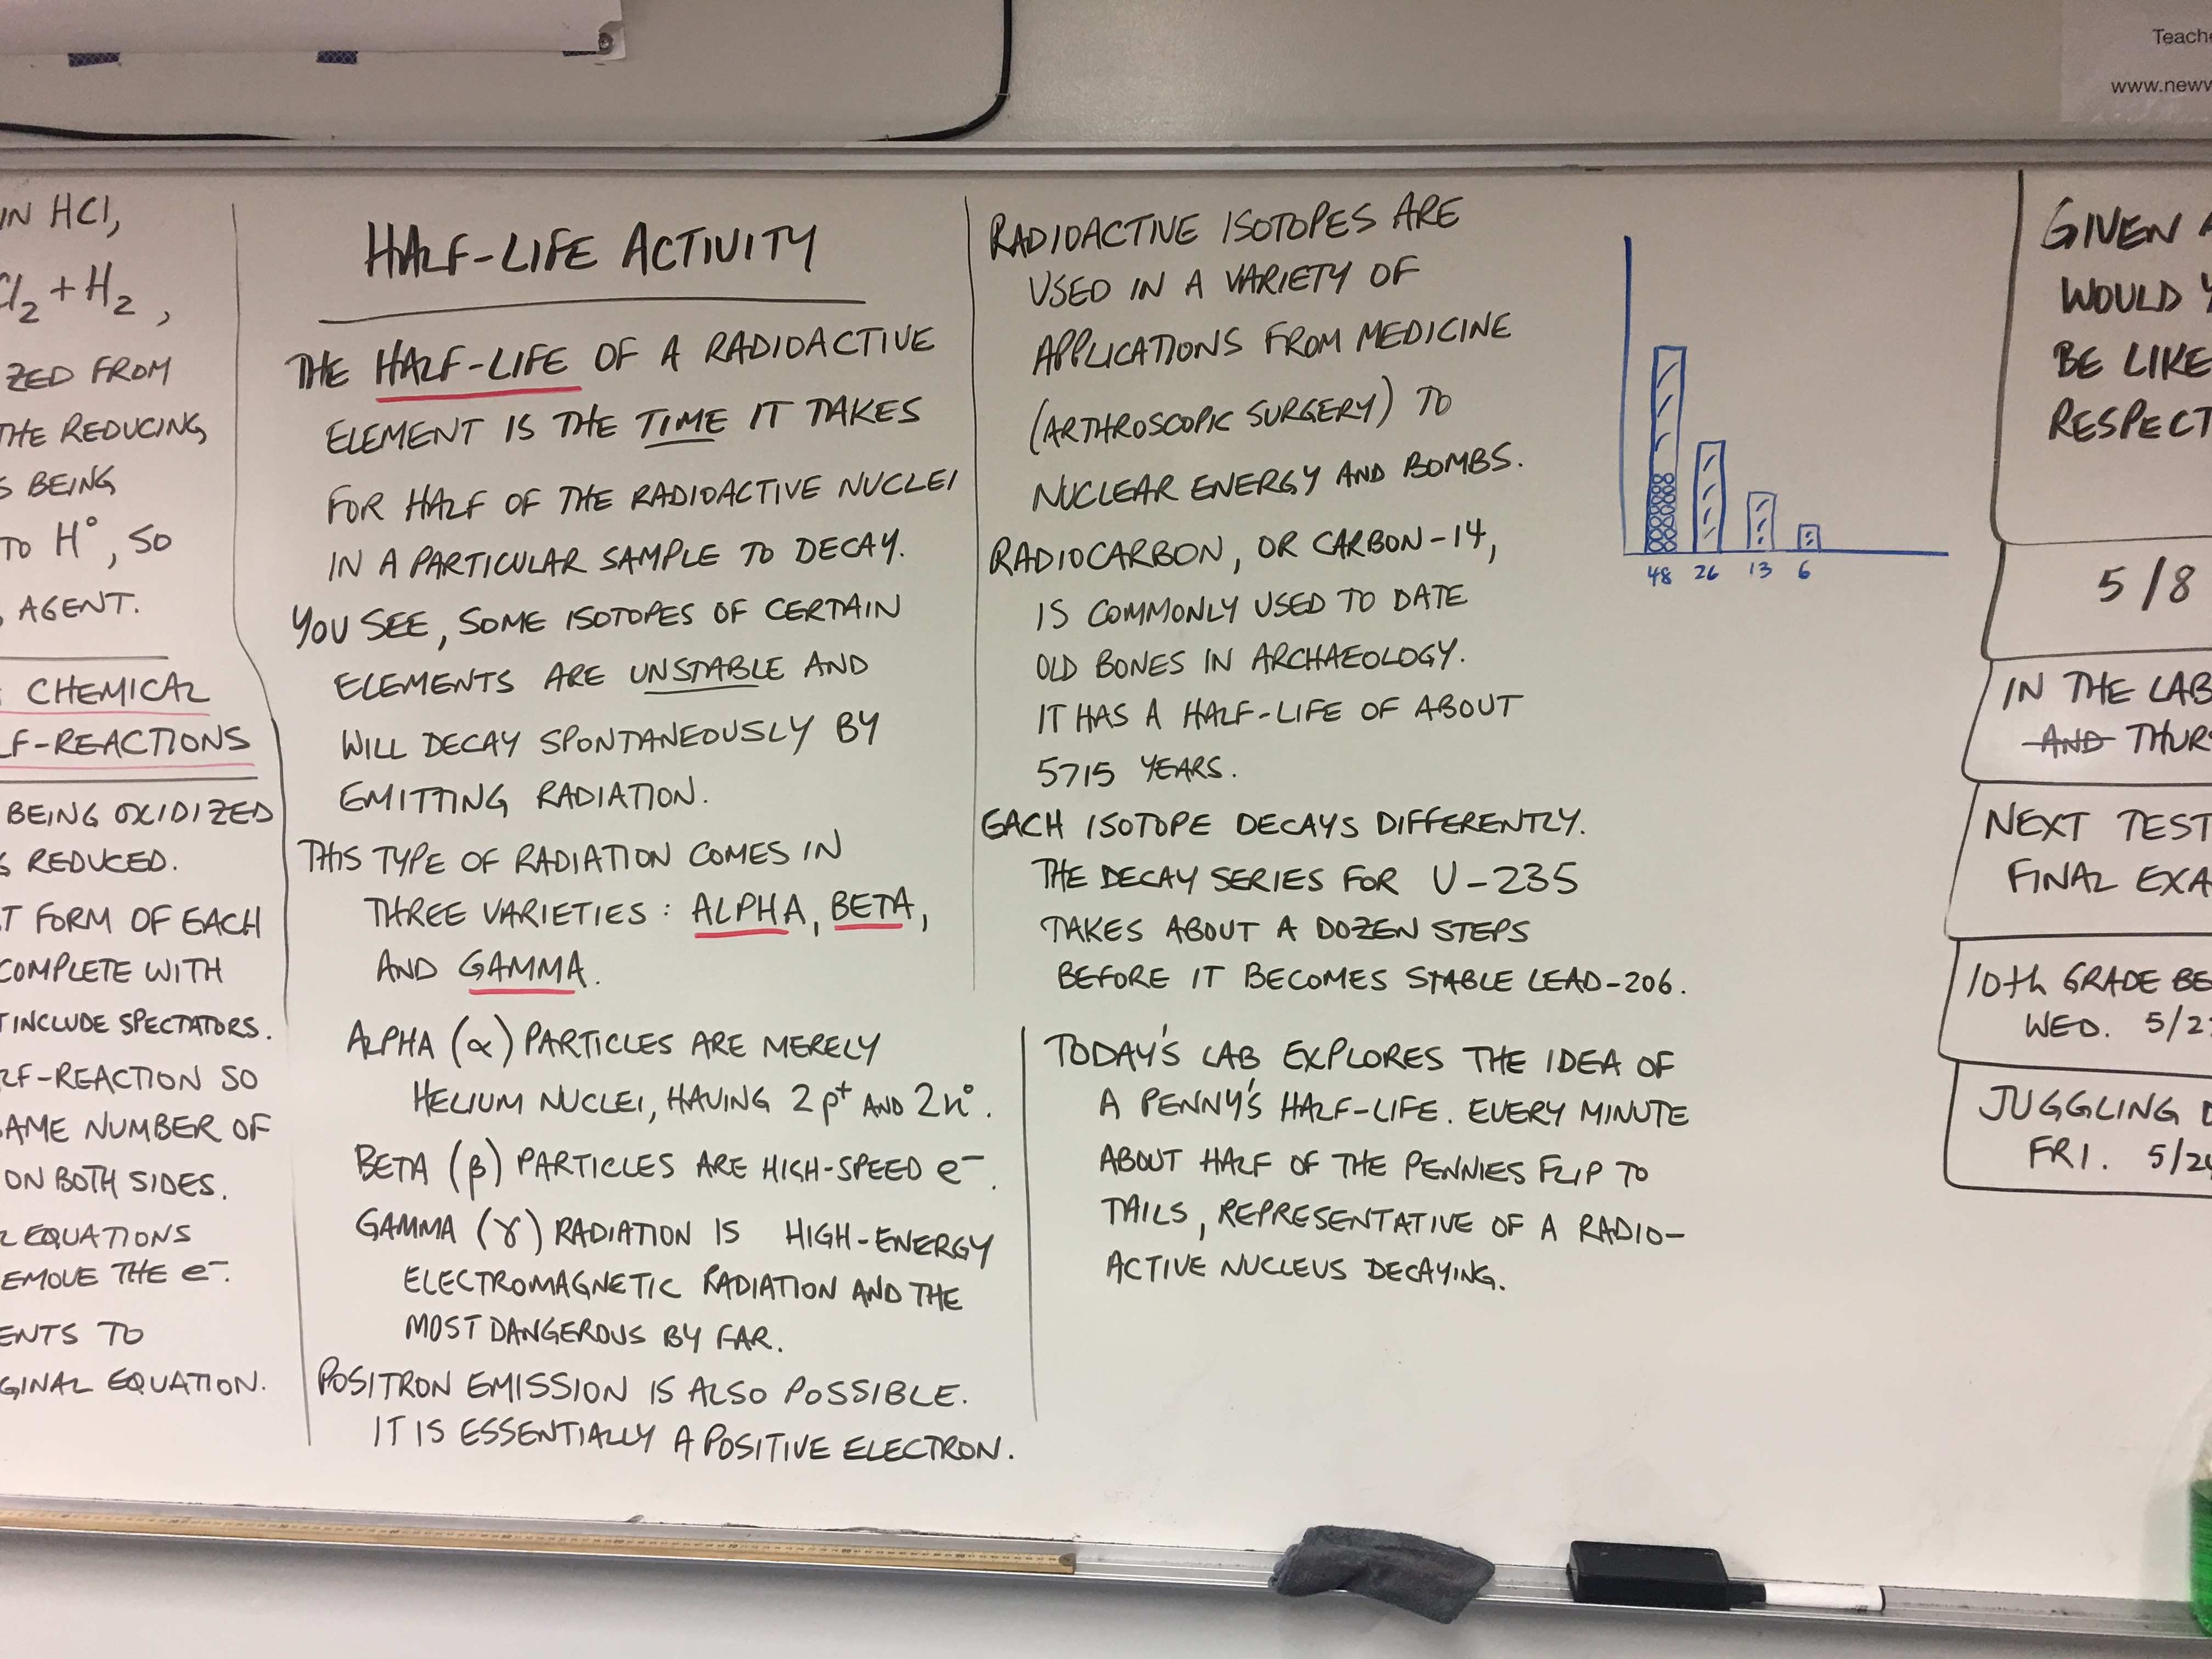 Teache
www.neww
IN HCl,
Cl₂ + H₂,
ZED FROM
THE REDUCING
S BEING
TO H°, SO
AGENT.
CHEMICAL
LF-REACTIONS
BEING OXIDIZED
S REDUCED.
T FORM OF EACH
COMPLETE WITH
T INCLUDE SPECTATORS.
LF-REACTION SO
AME NUMBER OF
ON BOTH SIDES.
L EQUATIONS
EMOVE THE e⁻.
ENTS TO
GINAL EQUATION.
HALF-LIFE ACTIVITY
THE HALF-LIFE OF A RADIOACTIVE
ELEMENT IS THE TIME IT TAKES
FOR HALF OF THE RADIOACTIVE NUCLEI
IN A PARTICULAR SAMPLE TO DECAY.
YOU SEE, SOME ISOTOPES OF CERTAIN
ELEMENTS ARE UNSTABLE AND
WILL DECAY SPONTANEOUSLY BY
EMITTING RADIATION.
THIS TYPE OF RADIATION COMES IN
THREE VARIETIES: ALPHA, BETA,
AND GAMMA.
ALPHA (α) PARTICLES ARE MERELY
HELIUM NUCLEI, HAVING 2p⁺ AND 2n°.
BETA (β) PARTICLES ARE HIGH-SPEED e⁻.
GAMMA (γ) RADIATION IS HIGH-ENERGY
ELECTROMAGNETIC RADIATION AND THE
MOST DANGEROUS BY FAR.
POSITRON EMISSION IS ALSO POSSIBLE.
IT IS ESSENTIALLY A POSITIVE ELECTRON.
RADIOACTIVE ISOTOPES ARE
USED IN A VARIETY OF
APPLICATIONS FROM MEDICINE
(ARTHROSCOPIC SURGERY) TO
NUCLEAR ENERGY AND BOMBS.
RADIOCARBON, OR CARBON-14,
IS COMMONLY USED TO DATE
OLD BONES IN ARCHAEOLOGY.
IT HAS A HALF-LIFE OF ABOUT
5715 YEARS.
EACH ISOTOPE DECAYS DIFFERENTLY.
THE DECAY SERIES FOR U-235
TAKES ABOUT A DOZEN STEPS
BEFORE IT BECOMES STABLE LEAD-206.
TODAY'S LAB EXPLORES THE IDEA OF
A PENNY'S HALF-LIFE. EVERY MINUTE
ABOUT HALF OF THE PENNIES FLIP TO
TAILS, REPRESENTATIVE OF A RADIO-
ACTIVE NUCLEUS DECAYING.
48 26 13 6
GIVEN A
WOULD Y
BE LIKE
RESPECT
5/8
IN THE LAB
AND THUR
NEXT TEST
FINAL EXA
10th GRADE BE
WED. 5/2
JUGGLING D
FRI. 5/24